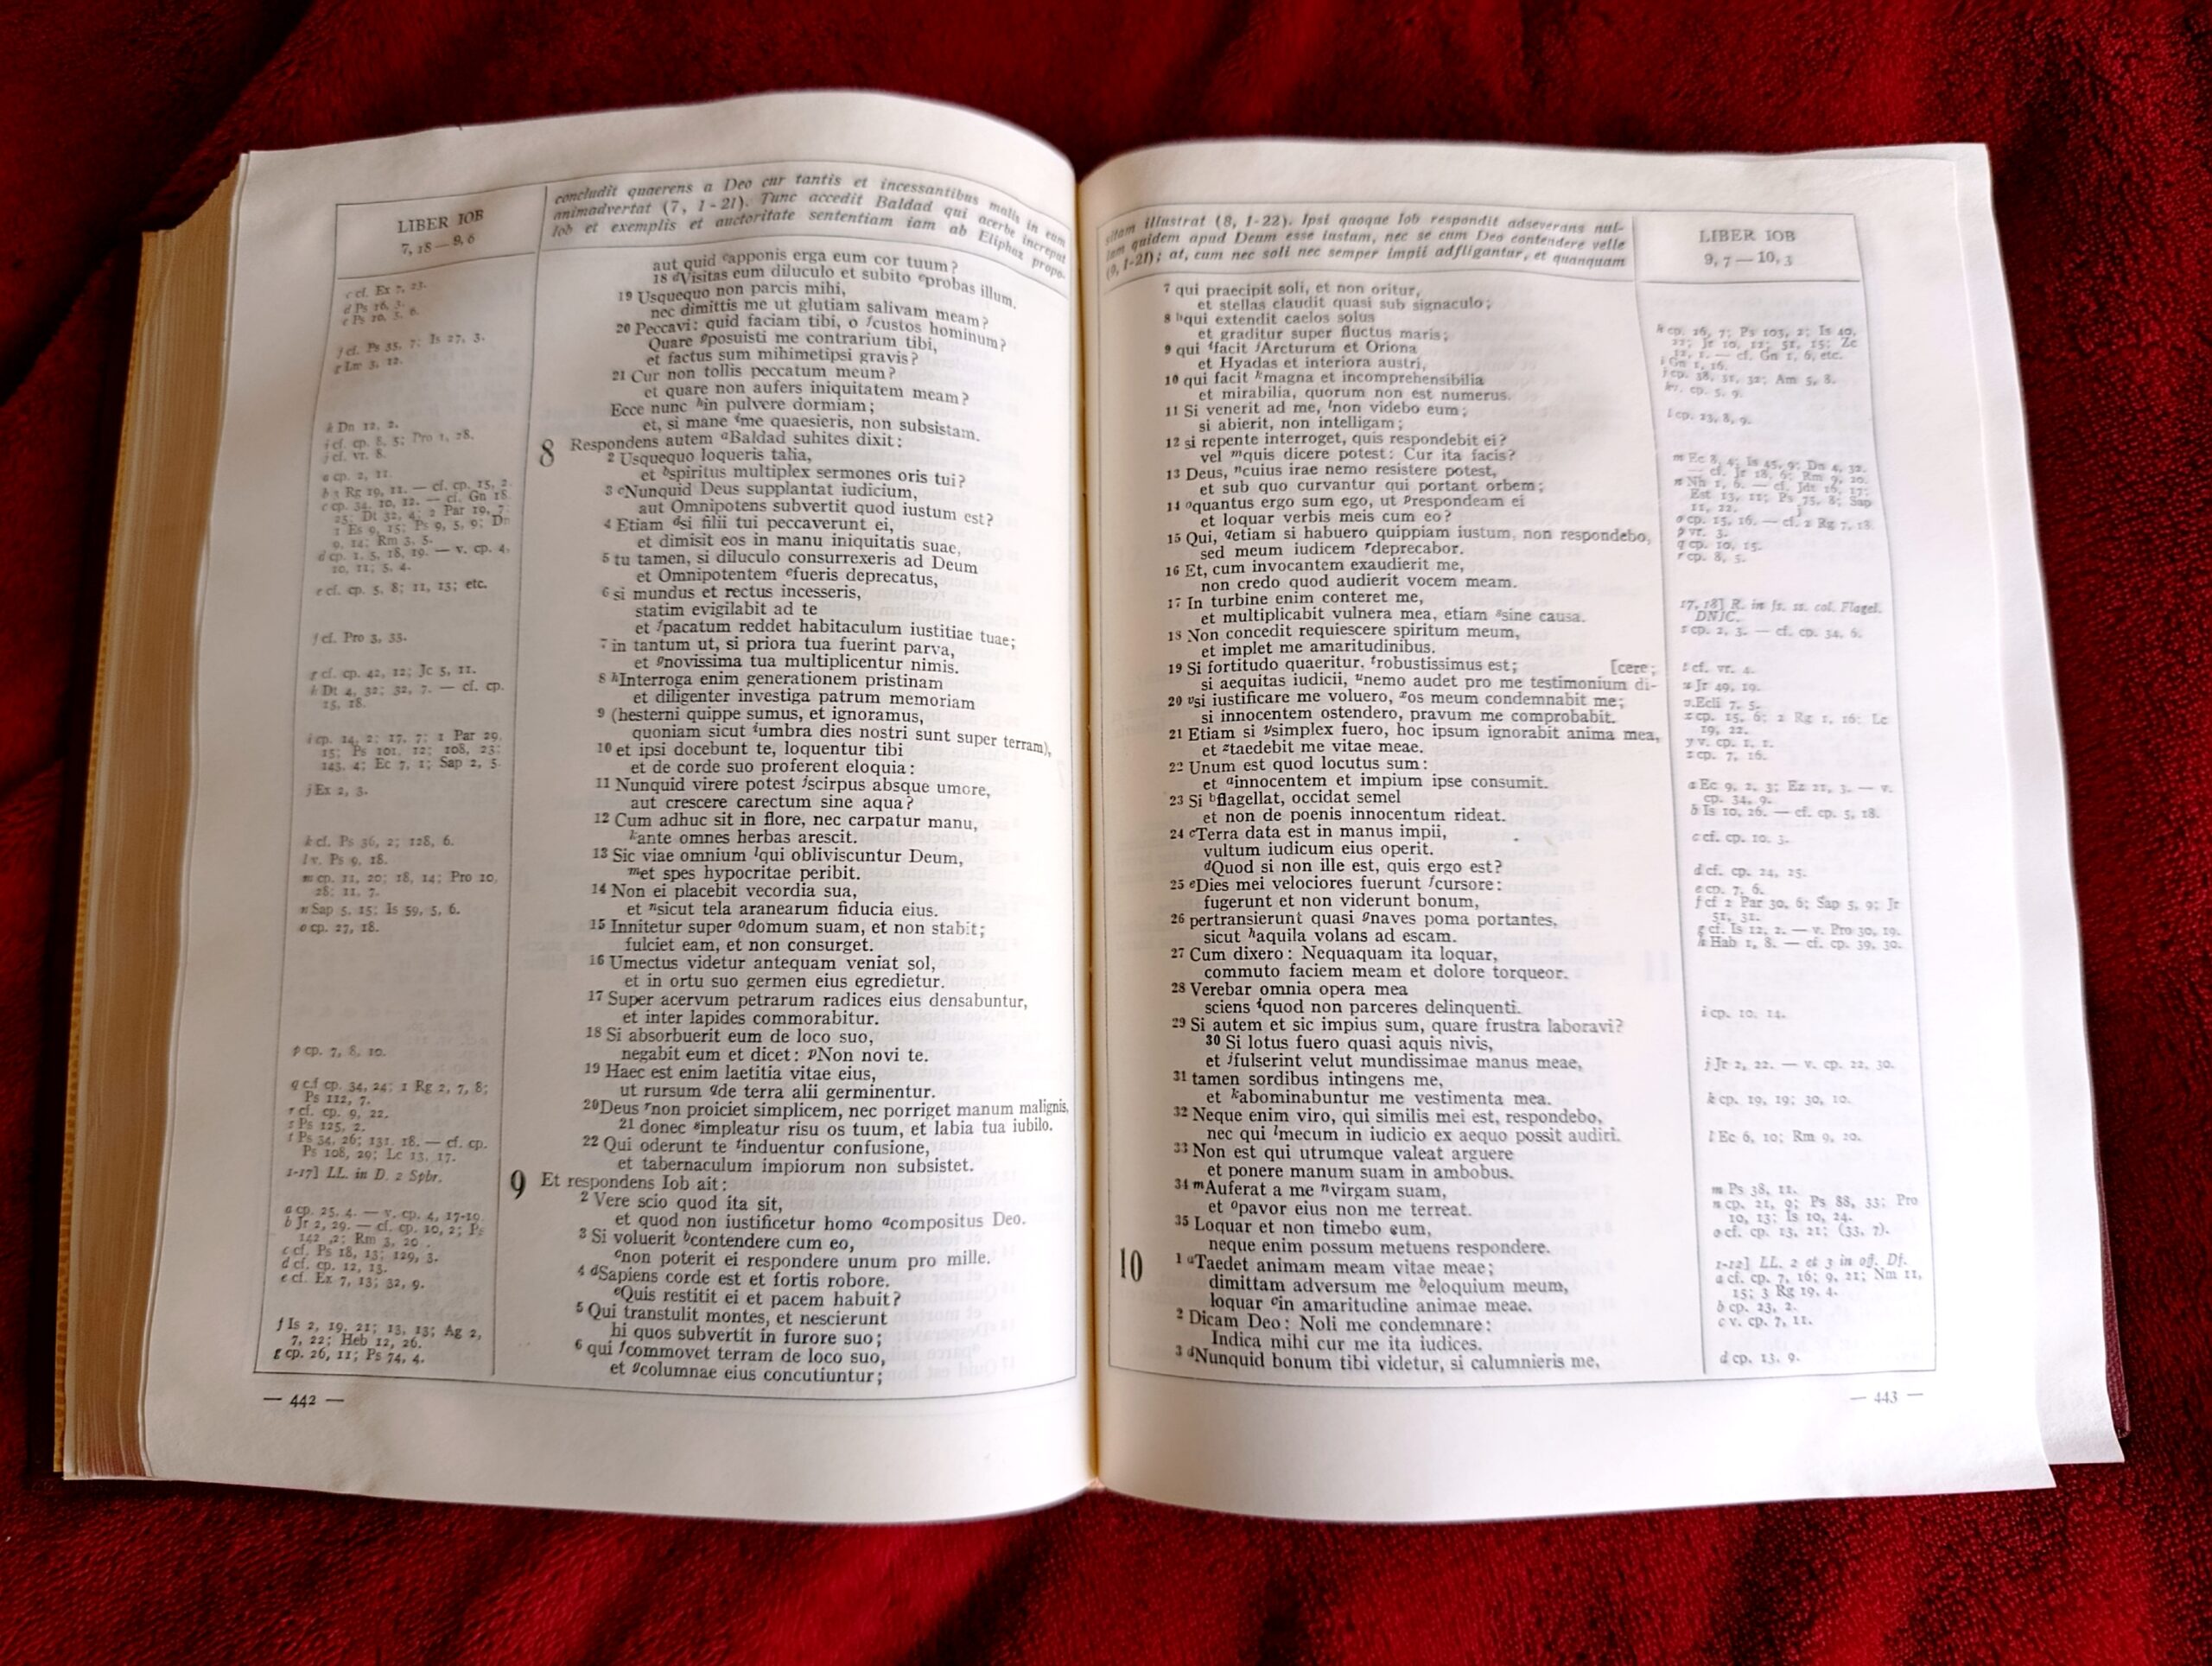 LIBER IOB
7, 18 — 9, 6
concludit quaerens a Deo cur tantis et incessantibus malis in eum
animadvertat (7, 1-21). Tunc accedit Baldad qui acerbe increpat
Iob et exemplis et auctoritate sententiam iam ab Eliphaz propo-
c cf. Ex 7, 23.
d Ps 16, 3.
e Ps 10, 5, 6.
f cf. Ps 35, 7; Is 27, 3.
g Lm 3, 12.
h Dn 12, 2.
i cf. cp. 8, 5; Pro 1, 28.
j cf. vr. 8.
a cp. 2, 11.
b 3 Rg 19, 11. — cf. cp. 15, 2.
c cp. 34, 10, 12. — cf. Gn 18,
25; Dt 32, 4; 2 Par 19, 7;
1 Es 9, 15; Ps 9, 5, 9; Dn
9, 14; Rm 3, 5.
d cp. 1, 5, 18, 19. — v. cp. 4,
10, 11; 5, 4.
e cf. cp. 5, 8; 11, 13; etc.
f cf. Pro 3, 33.
g cf. cp. 42, 12; Jc 5, 11.
h Dt 4, 32; 32, 7. — cf. cp.
15, 18.
i cp. 14, 2; 17, 7; 1 Par 29,
15; Ps 101, 12; 108, 23;
143, 4; Ec 7, 1; Sap 2, 5.
j Ex 2, 3.
k cf. Ps 36, 2; 128, 6.
l v. Ps 9, 18.
m cp. 11, 20; 18, 14; Pro 10,
28; 11, 7.
n Sap 5, 15; Is 59, 5, 6.
o cp. 27, 18.
p cp. 7, 8, 10.
q c.f cp. 34, 24; 1 Rg 2, 7, 8;
Ps 112, 7.
r cf. cp. 9, 22.
s Ps 125, 2.
t Ps 34, 26; 131, 18. — cf. cp.
Ps 108, 29; Lc 13, 17.
1-17] LL. in D. 2 Spbr.
a cp. 25, 4. — v. cp. 4, 17-19.
b Jr 2, 29. — cf. cp. 10, 2; Ps
142 ,2; Rm 3, 20 .
c cf. Ps 18, 13; 129, 3.
d cf. cp. 12, 13.
e cf. Ex 7, 13; 32, 9.
f Is 2, 19, 21; 13, 13; Ag 2,
7, 22; Heb 12, 26.
g cp. 26, 11; Ps 74, 4.
aut quid eapponis erga eum cor tuum?
18 dVisitas eum diluculo et subito eprobas illum.
19 Usquequo non parcis mihi,
nec dimittis me ut glutiam salivam meam?
20 Peccavi: quid faciam tibi, o fcustos hominum?
Quare gposuisti me contrarium tibi,
et factus sum mihimetipsi gravis?
21 Cur non tollis peccatum meum?
et quare non aufers iniquitatem meam?
Ecce nunc hin pulvere dormiam;
et, si mane ime quaesieris, non subsistam.
8 Respondens autem aBaldad suhites dixit:
2 Usquequo loqueris talia,
et bspiritus multiplex sermones oris tui?
3 cNunquid Deus supplantat iudicium,
aut Omnipotens subvertit quod iustum est?
4 Etiam dsi filii tui peccaverunt ei,
et dimisit eos in manu iniquitatis suae,
5 tu tamen, si diluculo consurrexeris ad Deum
et Omnipotentem efueris deprecatus,
6 si mundus et rectus incesseris,
statim evigilabit ad te
et fpacatum reddet habitaculum iustitiae tuae;
7 in tantum ut, si priora tua fuerint parva,
et gnovissima tua multiplicentur nimis.
8 hInterroga enim generationem pristinam
et diligenter investiga patrum memoriam
9 (hesterni quippe sumus, et ignoramus,
quoniam sicut iumbra dies nostri sunt super terram),
10 et ipsi docebunt te, loquentur tibi
et de corde suo proferent eloquia:
11 Nunquid virere potest jscirpus absque umore,
aut crescere carectum sine aqua?
12 Cum adhuc sit in flore, nec carpatur manu,
kante omnes herbas arescit.
13 Sic viae omnium lqui obliviscuntur Deum,
met spes hypocritae peribit.
14 Non ei placebit vecordia sua,
et nsicut tela aranearum fiducia eius.
15 Innitetur super odomum suam, et non stabit;
fulciet eam, et non consurget.
16 Umectus videtur antequam veniat sol,
et in ortu suo germen eius egredietur.
17 Super acervum petrarum radices eius densabuntur,
et inter lapides commorabitur.
18 Si absorbuerit eum de loco suo,
negabit eum et dicet: pNon novi te.
19 Haec est enim laetitia vitae eius,
ut rursum qde terra alii germinentur.
20 Deus rnon proiciet simplicem, nec porriget manum malignis,
21 donec simpleatur risu os tuum, et labia tua iubilo.
22 Qui oderunt te tinduentur confusione,
et tabernaculum impiorum non subsistet.
9 Et respondens Iob ait:
2 Vere scio quod ita sit,
et quod non iustificetur homo acompositus Deo.
3 Si voluerit bcontendere cum eo,
cnon poterit ei respondere unum pro mille.
4 dSapiens corde est et fortis robore.
eQuis restitit ei et pacem habuit?
5 Qui transtulit montes, et nescierunt
hi quos subvertit in furore suo;
6 qui fcommovet terram de loco suo,
et gcolumnae eius concutiuntur;
— 442 —
sitam illustrat (8, 1-22). Ipsi quoque Iob respondit adseverans nul-
lum quidem apud Deum esse iustum, nec se cum Deo contendere velle
(9, 1-21); at, cum nec soli nec semper impii adfligantur, et quanquam
LIBER IOB
9, 7 — 10, 3
7 qui praecipit soli, et non oritur,
et stellas claudit quasi sub signaculo;
8 hqui extendit caelos solus
et graditur super fluctus maris;
9 qui ifacit jArcturum et Oriona
et Hyadas et interiora austri,
10 qui facit kmagna et incomprehensibilia
et mirabilia, quorum non est numerus.
11 Si venerit ad me, lnon videbo eum;
si abierit, non intelligam;
12 si repente interroget, quis respondebit ei?
vel mquis dicere potest: Cur ita facis?
13 Deus, ncuius irae nemo resistere potest,
et sub quo curvantur qui portant orbem;
14 oquantus ergo sum ego, ut prespondeam ei
et loquar verbis meis cum eo?
15 Qui, qetiam si habuero quippiam iustum, non respondebo,
sed meum iudicem rdeprecabor.
16 Et, cum invocantem exaudierit me,
non credo quod audierit vocem meam.
17 In turbine enim conteret me,
et multiplicabit vulnera mea, etiam ssine causa.
18 Non concedit requiescere spiritum meum,
et implet me amaritudinibus.
19 Si fortitudo quaeritur, trobustissimus est; [cere;
si aequitas iudicii, unemo audet pro me testimonium di-
20 vsi iustificare me voluero, xos meum condemnabit me;
si innocentem ostendero, pravum me comprobabit.
21 Etiam si ysimplex fuero, hoc ipsum ignorabit anima mea,
et ztaedebit me vitae meae.
22 Unum est quod locutus sum:
et ainnocentem et impium ipse consumit.
23 Si bflagellat, occidat semel
et non de poenis innocentum rideat.
24 cTerra data est in manus impii,
vultum iudicum eius operit.
dQuod si non ille est, quis ergo est?
25 eDies mei velociores fuerunt fcursore:
fugerunt et non viderunt bonum,
26 pertransierunt quasi gnaves poma portantes,
sicut haquila volans ad escam.
27 Cum dixero: Nequaquam ita loquar,
commuto faciem meam et dolore torqueor.
28 Verebar omnia opera mea
sciens iquod non parceres delinquenti.
29 Si autem et sic impius sum, quare frustra laboravi?
30 Si lotus fuero quasi aquis nivis,
et jfulserint velut mundissimae manus meae,
31 tamen sordibus intinges me,
et kabominabuntur me vestimenta mea.
32 Neque enim viro, qui similis mei est, respondebo,
nec qui lmecum in iudicio ex aequo possit audiri.
33 Non est qui utrumque valeat arguere
et ponere manum suam in ambobus.
34 mAuferat a me nvirgam suam,
et opavor eius non me terreat.
35 Loquar et non timebo eum,
neque enim possum metuens respondere.
10 1 aTaedet animam meam vitae meae;
dimittam adversum me beloquium meum,
loquar cin amaritudine animae meae.
2 Dicam Deo: Noli me condemnare:
Indica mihi cur me ita iudices.
3 dNunquid bonum tibi videtur, si calumnieris me,
h cp. 26, 7; Ps 103, 2; Is 40,
22; Jr 10, 12; 51, 15; Zc
12, 1. — cf. Gn 1, 6, etc.
i Gn 1, 16.
j cp. 38, 31, 32; Am 5, 8.
k v. cp. 5, 9.
l cp. 23, 8, 9.
m Ec 8, 4; Is 45, 9; Dn 4, 32.
— cf. Jr 18, 6; Rm 9, 20.
n Nh 1, 6. — cf. Jdt 16, 17;
Est 13, 11; Ps 75, 8; Sap
11, 22.
o cp. 15, 16. — cf. 2 Rg 7, 18.
p vr. 3.
q cp. 10, 15.
r cp. 8, 5.
17, 18] R. in fs. ss. col. Flagel.
DNJC.
s cp. 2, 3. — cf. cp. 34, 6.
t cf. vr. 4.
u Jr 49, 19.
v.Ecli 7, 5.
x cp. 15, 6; 2 Rg 1, 16; Lc
19, 22.
y v. cp. 1, 1.
z cp. 7, 16.
a Ec 9, 2, 3; Ez 21, 3. — v.
cp. 34, 9.
b Is 10, 26. — cf. cp. 5, 18.
c cf. cp. 10, 3.
d cf. cp. 24, 25.
e cp. 7, 6.
f cf 2 Par 30, 6; Sap 5, 9; Jr
51, 31.
g cf. Is 12, 2. — v. Pro 30, 19.
h Hab 1, 8. — cf. cp. 39, 30.
i cp. 10, 14.
j Jr 2, 22. — v. cp. 22, 30.
k cp. 19, 19; 30, 10.
l Ec 6, 10; Rm 9, 20.
m Ps 38, 11.
n cp. 21, 9; Ps 88, 33; Pro
10, 13; Is 10, 24.
o cf. cp. 13, 21; (33, 7).
1-12] LL. 2 et 3 in off. Df.
a cf. cp. 7, 16; 9, 21; Nm 11,
15; 3 Rg 19, 4.
b cp. 23, 2.
c v. cp. 7, 11.
d cp. 13, 9.
— 443 —